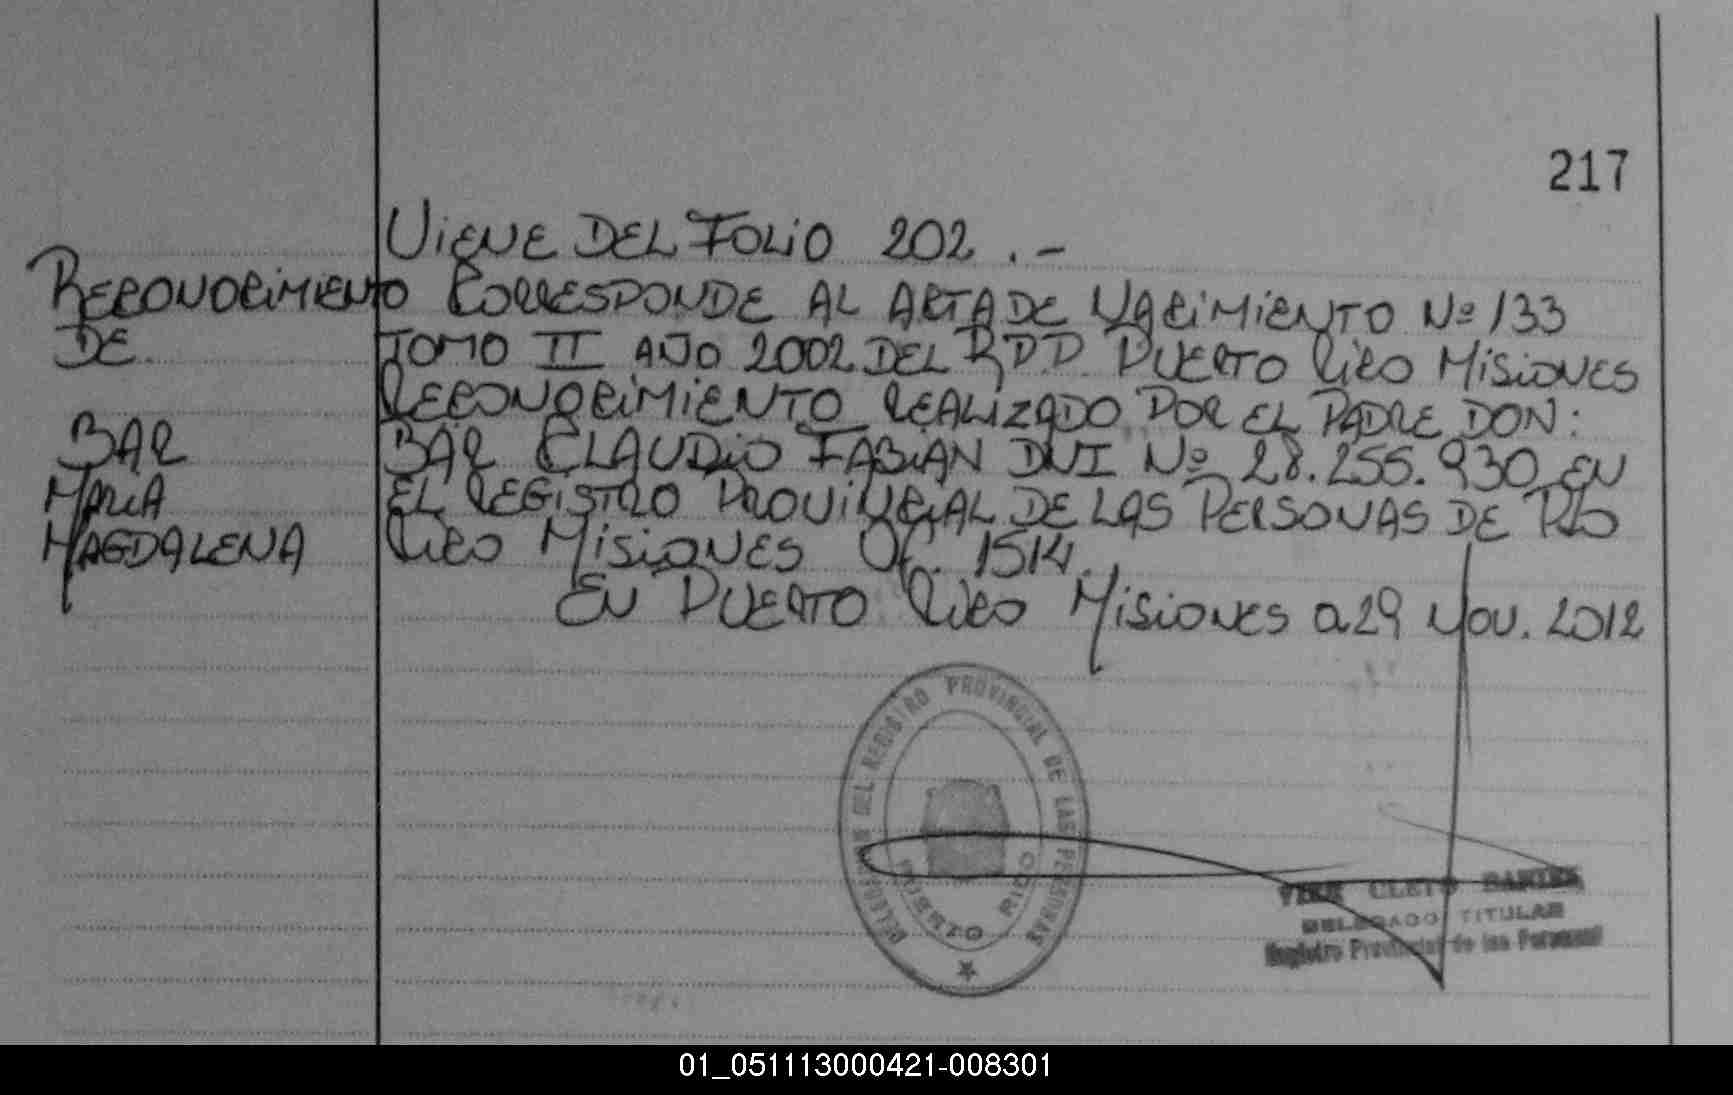 217
VIENE DEL FOLIO 202 . -
RECONOCIMIENTO CORRESPONDE AL ACTA DE NACIMIENTO Nº 133
DE TOMO II AÑO 2002 DEL R.P.P. PUERTO RICO MISIONES
RECONOCIMIENTO REALIZADO POR EL PADRE DON:
BAR BAR CLAUDIO FABIAN DNI Nº 28.255.930 EN
MARIA EL REGISTRO PROVINCIAL DE LAS PERSONAS DE PTO
MAGDALENA RICO MISIONES OF. 1514.
EN PUERTO RICO MISIONES a 29 NOV. 2012
DELEGACION DEL REGISTRO PROVINCIAL DE LAS PERSONAS
PUERTO RICO
CLETO
DELEGADO TITULAR
Registro Provincial de las Personas
01_051113000421-008301